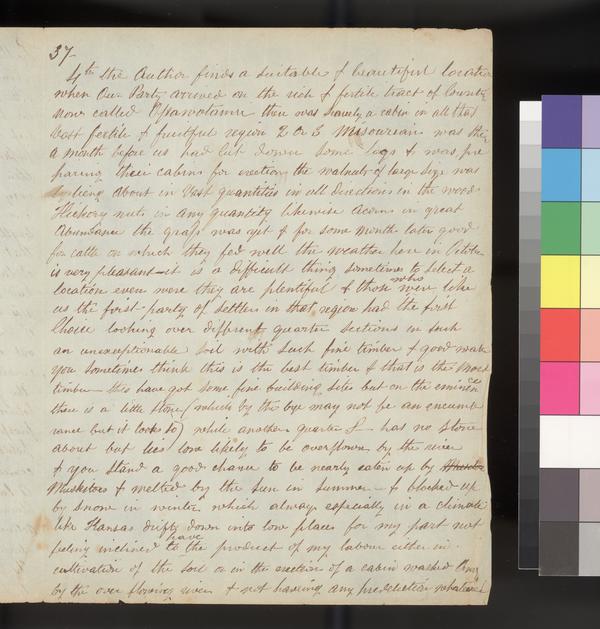 37-
4th the Author finds a suitable & beautiful location
when Our Party arrived on the rich & fertile tract of Country
now called Pottawotamie there was scarcely a cabin in all that
Vast fertile & fruitful region 2 or 3 Missourians was there
a month before us had cut down some logs & was pre
paring their cabins for erection, the walnuts of large size was
lieing about in Vast quantities in all directions in the woods
Hickory nuts in any quantity likewise Acorns in great
Abundance the grass was yet & for some months later good
for cattle on which they fed well the weather here in October
is very pleasant - it is a difficult thing sometimes to select a
location even were they are plentiful & those who were like
us the first party of settlers in that region had the first
Choice looking over different quarter sections in such
an unexceptionable soil with such fine timber & good water
you sometimes think this is the best timber & that is the most
timber - this have got some fine building sites but on the eminence
there is a little stone (which by the bye may not be an encumb
rance but it looks so) while another quarter S - has no stone
about but lies low likely to be overflown by the river
& you stand a good chance to be nearly eaten up by
Muskitoes & melted by the sun in summer - & blocked up
by snow in winter which always especially in a climate
like Kansas drifts down into low places for my part not
feeling inclined to have the product of my labour either in
cultivation of the soil or in the erection of a cabin washed away
by the over flowing river & not having any predilection whatever